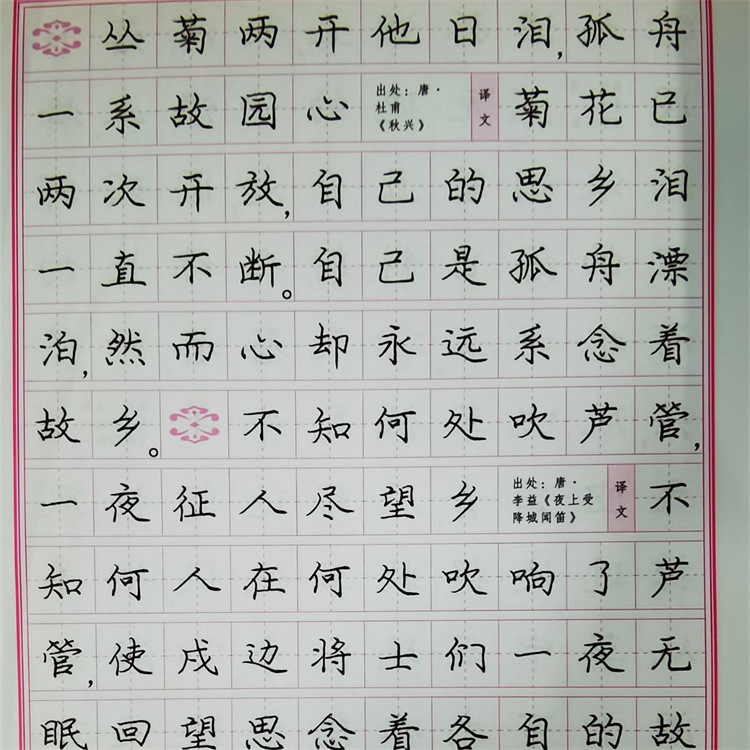 丛菊两开他日泪,孤舟
一系故园心 出处：唐·杜甫《秋兴》 译文 菊花已
两次开放,自己的思乡泪
一直不断。自己是孤舟漂
泊,然而心却永远系念着
故乡。不知何处吹芦管,
一夜征人尽望乡 出处：唐·李益《夜上受降城闻笛》 译文 不
知何人在何处吹响了芦
管,使戍边将士们一夜无
眠回望思念着各自的故